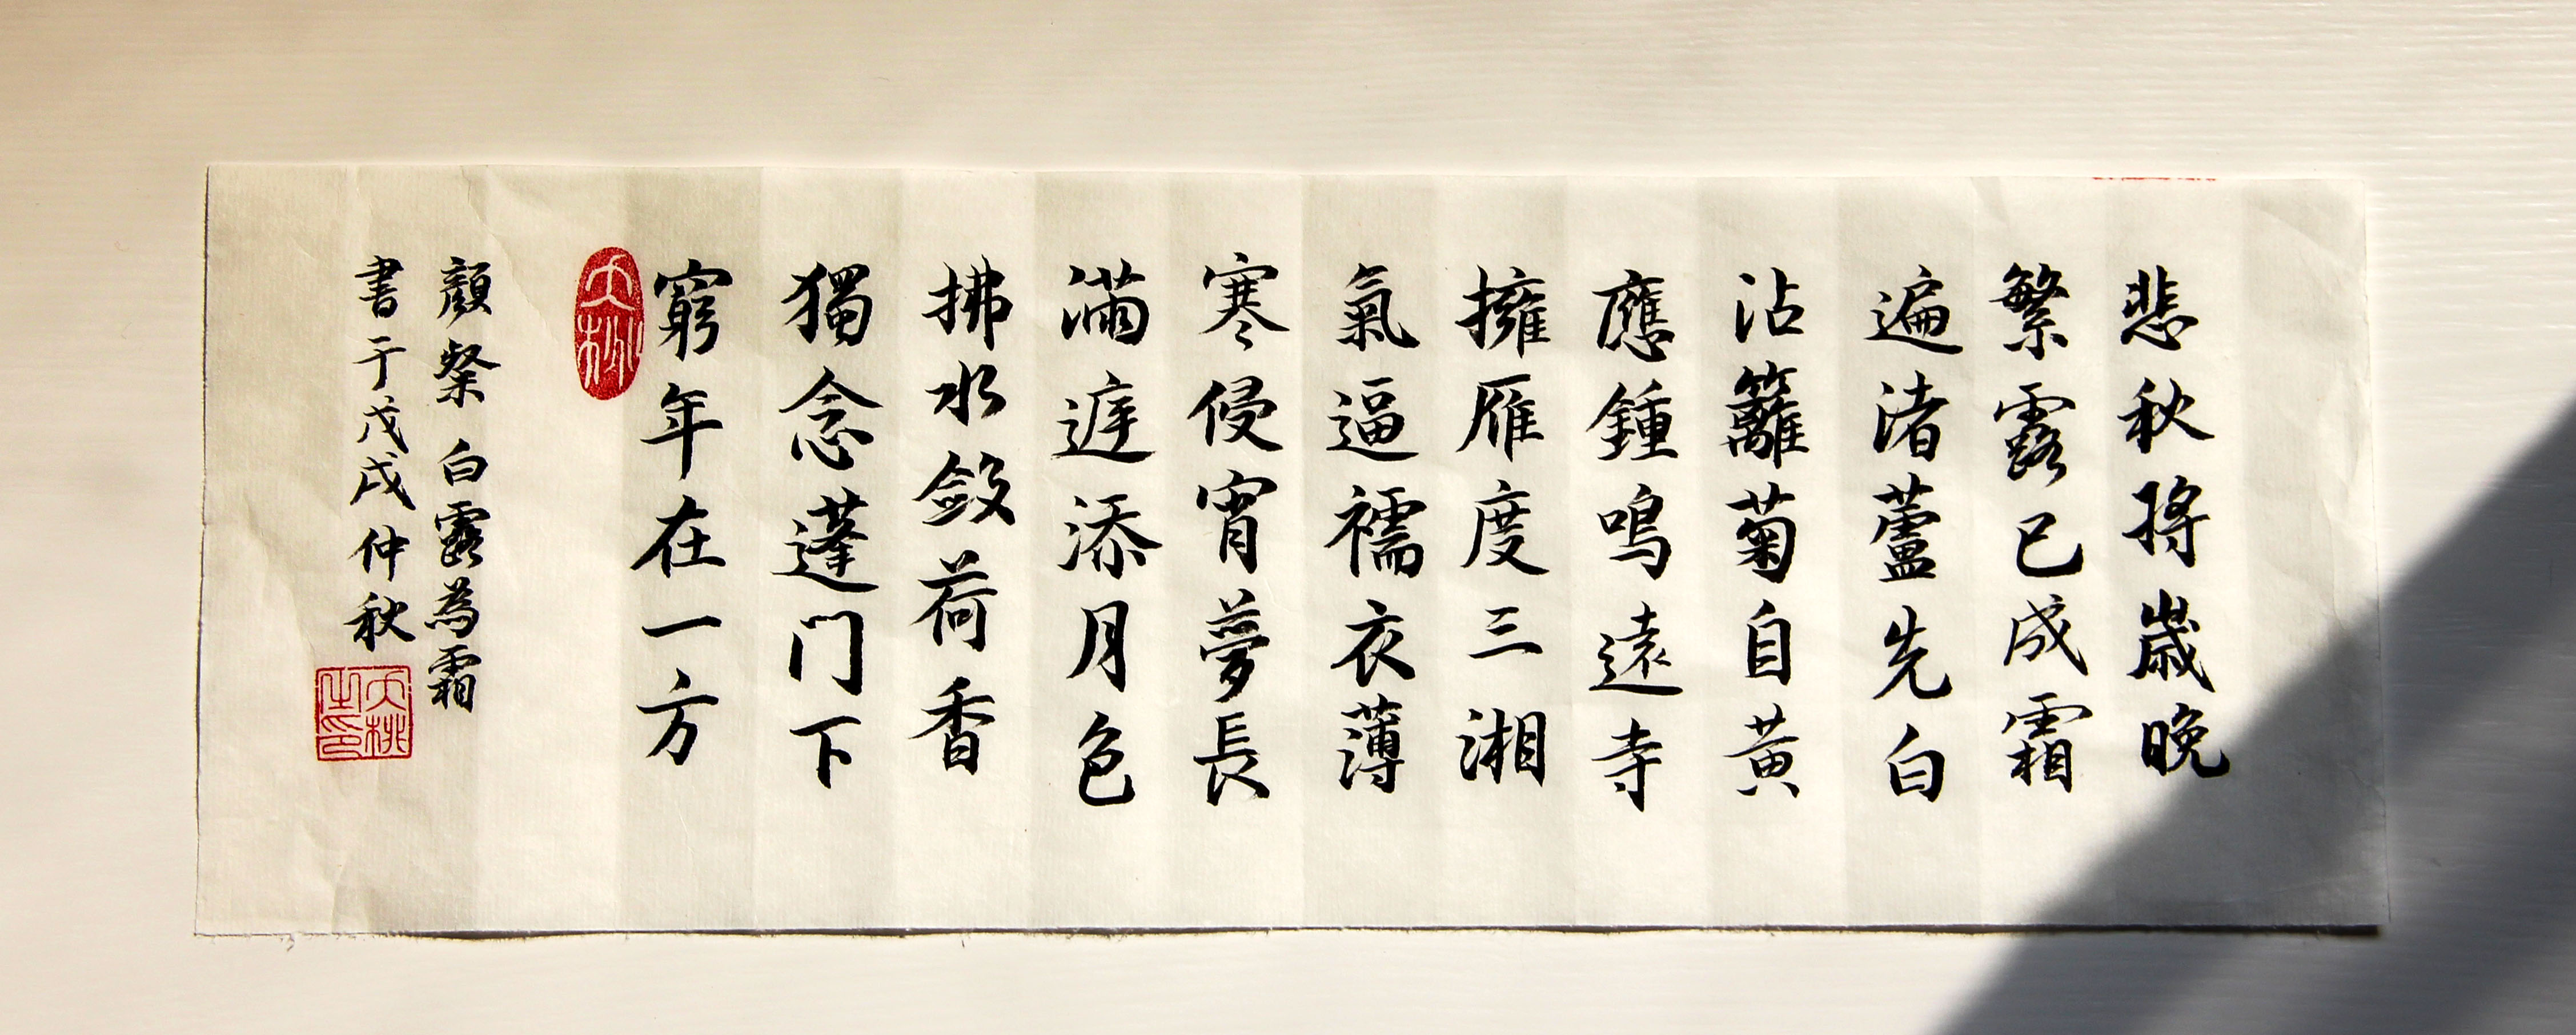 悲秋將歲晚
繁露已成霜
遍渚蘆先白
沾籬菊自黃
應鍾鳴遠寺
擁雁度三湘
氣逼襦衣薄
寒侵宵夢長
滿遅添月色
拂水斂荷香
獨念蓬门下
窮年在一方
顏粲 白露為霜
書于戊戌仲秋